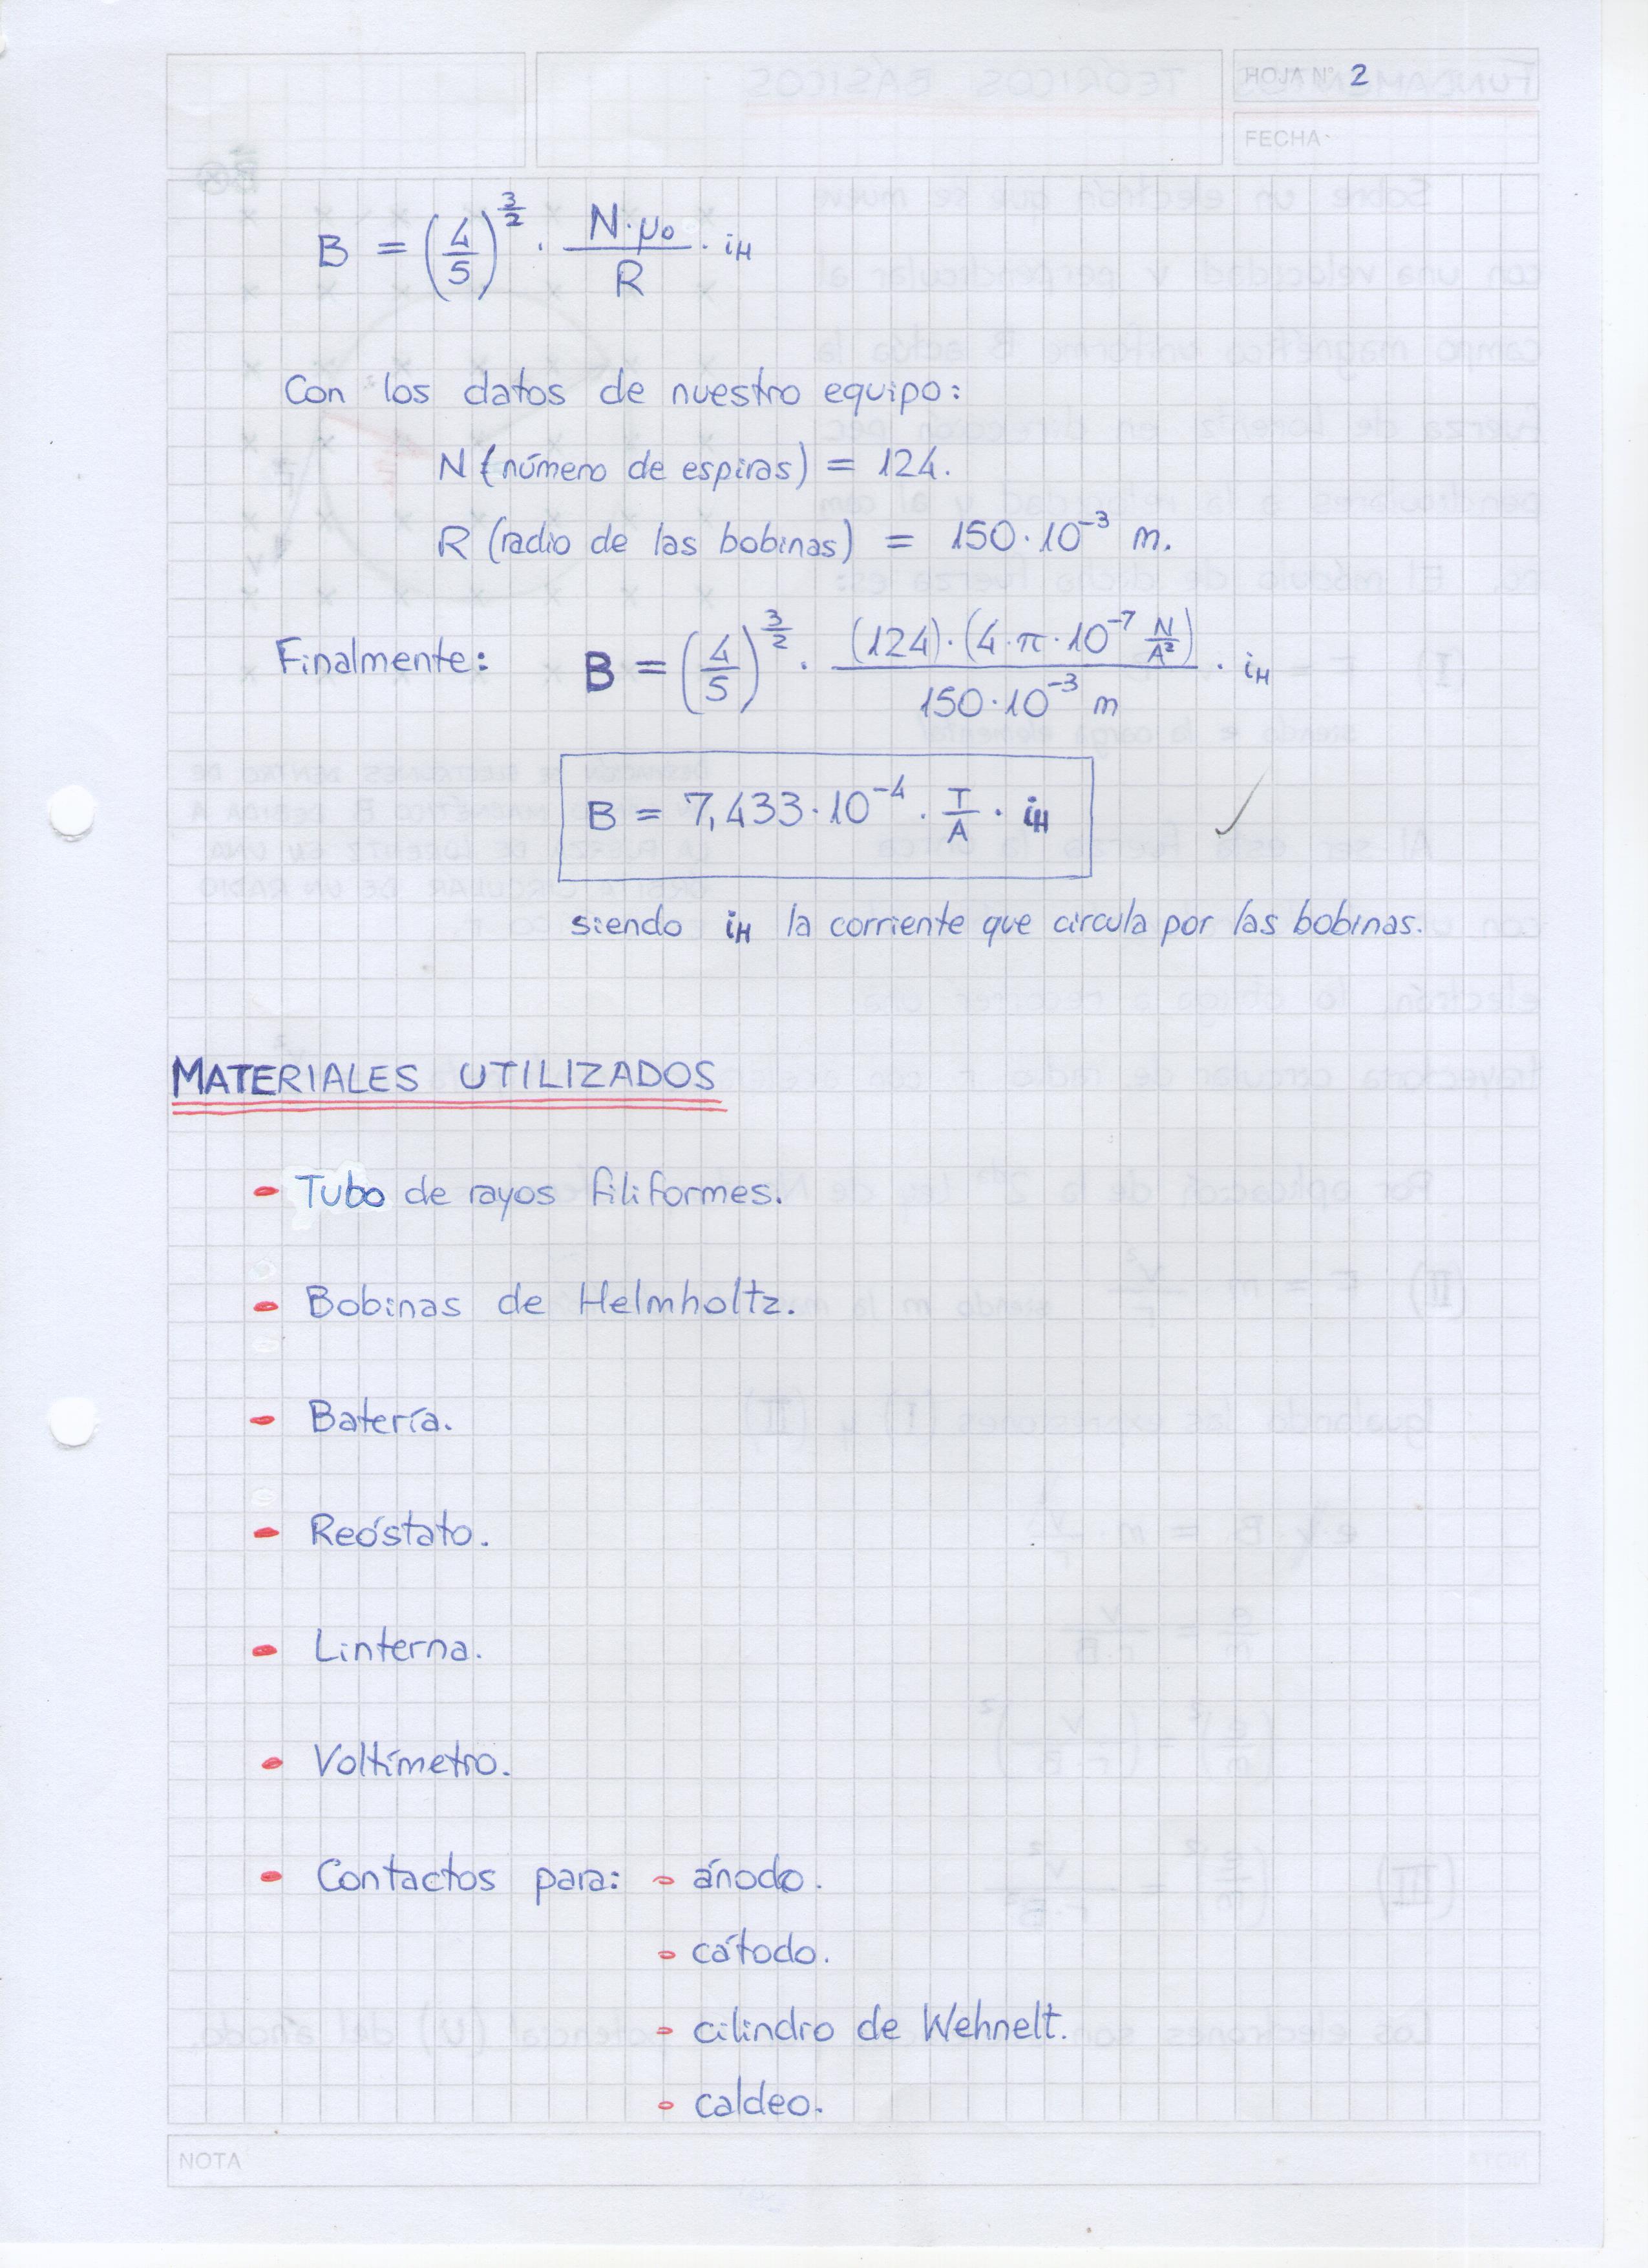 HOJA Nº 2
FECHA
B = (4/5)^(3/2) · (N·μ₀)/R · i_H
Con los datos de nuestro equipo:
N (número de espiras) = 124.
R (radio de las bobinas) = 150·10⁻³ m.
Finalmente: B = (4/5)^(3/2) · ((124)·(4·π·10⁻⁷ N/A²))/(150·10⁻³ m) · i_H
B = 7,433·10⁻⁴ · T/A · i_H
siendo i_H la corriente que circula por las bobinas.
MATERIALES UTILIZADOS
- Tubo de rayos filiformes.
- Bobinas de Helmholtz.
- Batería.
- Reóstato.
- Linterna.
- Voltímetro.
- Contactos para: - ánodo.
- cátodo.
- cilindro de Wehnelt.
- caldeo.
NOTA